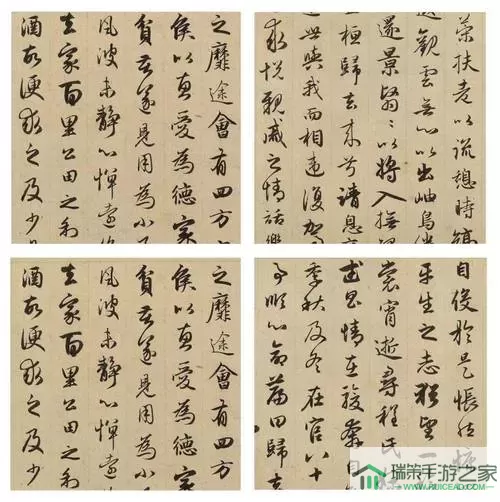 之靡途會有四方
侯以惠愛為德家
貧苦遂見用為小
風波未靜心憚遠
去家百里公田之利
酒故便求之及少
策扶老以流憩時矯
遐觀雲無心以出岫鳥倦
還景翳〻以將入撫
桓歸去來兮請息交
世與我而相違復駕
求悦親戚之情話樂
之靡途會有四方
侯以惠愛為德家
貧苦遂見用為小
風波未靜心憚遠
去家百里公田之利
酒故便求之及少
自役於是悵然慷
平生之志猶望一
裳宵逝尋程氏
武昌情在駿奔自
季秋及冬在官八十
事順心命篇曰歸去
瑞荣手游之家
WWW.PEIRCEAD.COM